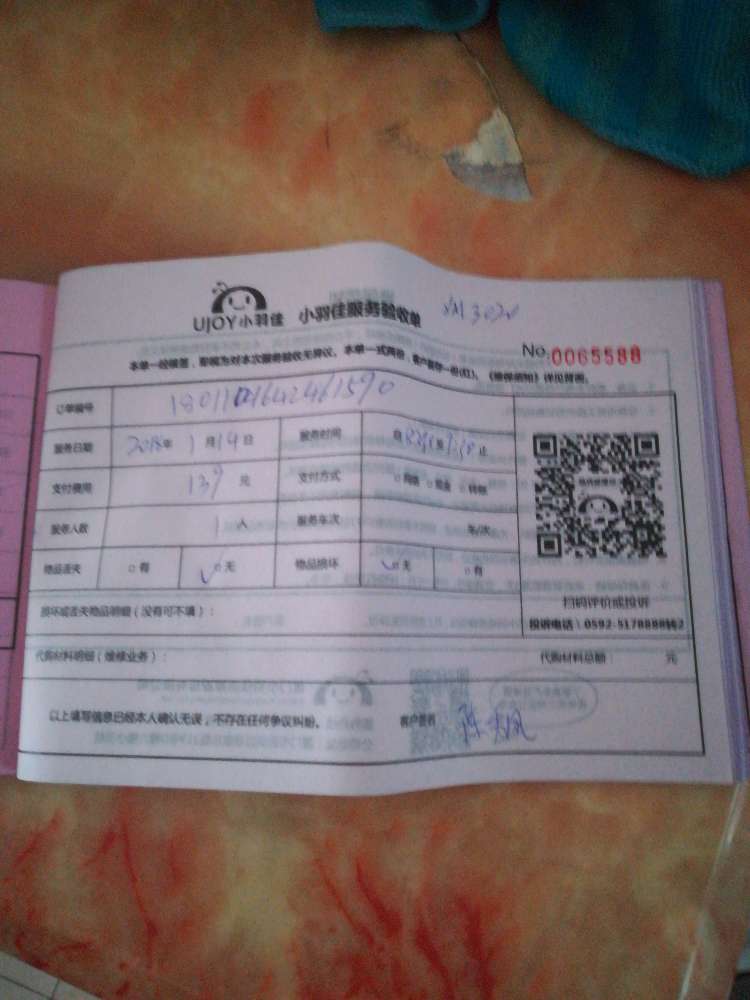 UJOY小羽佳 小羽佳服务验收单
No.0065588
本单一经签, 即视为对本次服务验收无异议。本单一式两份, 客户留存一份(红)。《 》详见背面。
订单编号
服务日期 2018年 1月14日 服务时间 自 至 止
支付费用 139元 支付方式 □ □现金 □转账
服务人数 1人 服务车次 车/次
物品丢失 □有 ✓□无 物品损坏 ✓□无 □有
扫码评价或投诉
损坏或丢失物品明细（没有可不填）： 投诉电话：0592-5178888转2
代购材料明细（维修业务）： 代购材料总额： 元
以上填写信息已经本人确认无误，不存在任何争议纠纷。 客户签名